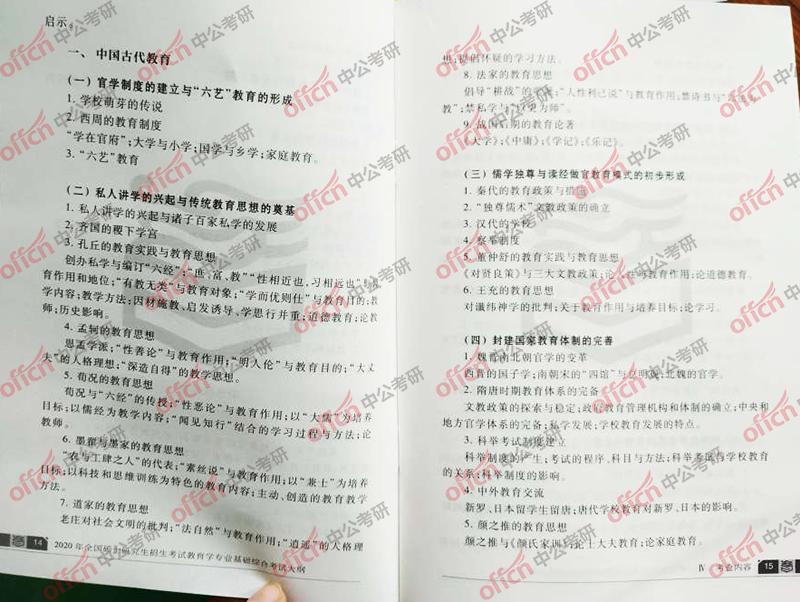 启示。
一、中国古代教育
(一) 官学制度的建立与“六艺”教育的形成
1. 学校萌芽的传说
2. 西周的教育制度
“学在官府”;大学与小学;国学与乡学;家庭教育。
3. “六艺”教育
(二) 私人讲学的兴起与传统教育思想的奠基
1. 私人讲学的兴起与诸子百家私学的发展
2. 齐国的稷下学宫
3. 孔丘的教育实践与教育思想
创办私学与编订“六经”;“庶、富、教”“性相近也,习相远也”与教
育作用和地位;“有教无类”与教育对象;“学而优则仕”与教育目的;教
学内容;教学方法:因材施教、启发诱导、学思行并重;道德教育;论教
师;历史影响。
4. 孟轲的教育思想
思孟学派;“性善论”与教育作用;“明人伦”与教育目的;“大丈
夫”的人格理想;“深造自得”的教学思想。
5. 荀况的教育思想
荀况与“六经”的传授;“性恶论”与教育作用;以“大儒”为培养
目标;以儒经为教学内容;“闻见知行”结合的学习过程与方法;论
教师。
6. 墨翟与墨家的教育思想
“农与工肆之人”的代表;“素丝说”与教育作用;以“兼士”为培养
目标;以科技和思维训练为特色的教育内容;主动、创造的教育教学
方法。
7. 道家的教育思想
老庄对社会文明的批判;“法自然”与教育作用;“逍遥”的人格理
14 2020年全国硕士研究生招生考试教育学专业基础综合考试大纲
想;提倡怀疑的学习方法。
8. 法家的教育思想
倡导“耕战”的 ;“人性利己说”与教育作用;禁诗书与“
教”;禁私学与“以吏为师”。
9. 战国后期的教育论著
《大学》;《中庸》;《学记》;《乐记》。
(三) 儒学独尊与读经做官教育模式的初步形成
1. 秦代的教育政策与措施
2. “独尊儒术”文教政策的确立
3. 汉代的学校
4. 察举制度
5. 董仲舒的教育实践与教育思想
《对贤良策》与三大文教政策;论人性与教育作用;论道德教育。
6. 王充的教育思想
对谶纬神学的批判;关于教育作用与培养目标;论学习。
(四) 封建国家教育体制的完善
1. 魏晋南北朝官学的变革
西晋的国子学;南朝宋的“四馆”与总明观;北魏的官学。
2. 隋唐时期教育体系的完备
文教政策的探索与稳定;政府教育管理机构和体制的确立;中央和
地方官学体系的完备;私学发展;学校教育发展的特点。
3. 科举考试制度建立
科举制度的产生;考试的程序、科目与方法;科举考试与学校教育
的关系;科举制度的影响。
4. 中外教育交流
新罗、日本留学生留唐;唐代学校教育对新罗、日本的影响。
5. 颜之推的教育思想
颜之推与《颜氏家训》;论士大夫教育;论家庭教育。
Ⅳ 考查内容 15
offcn 中公考研